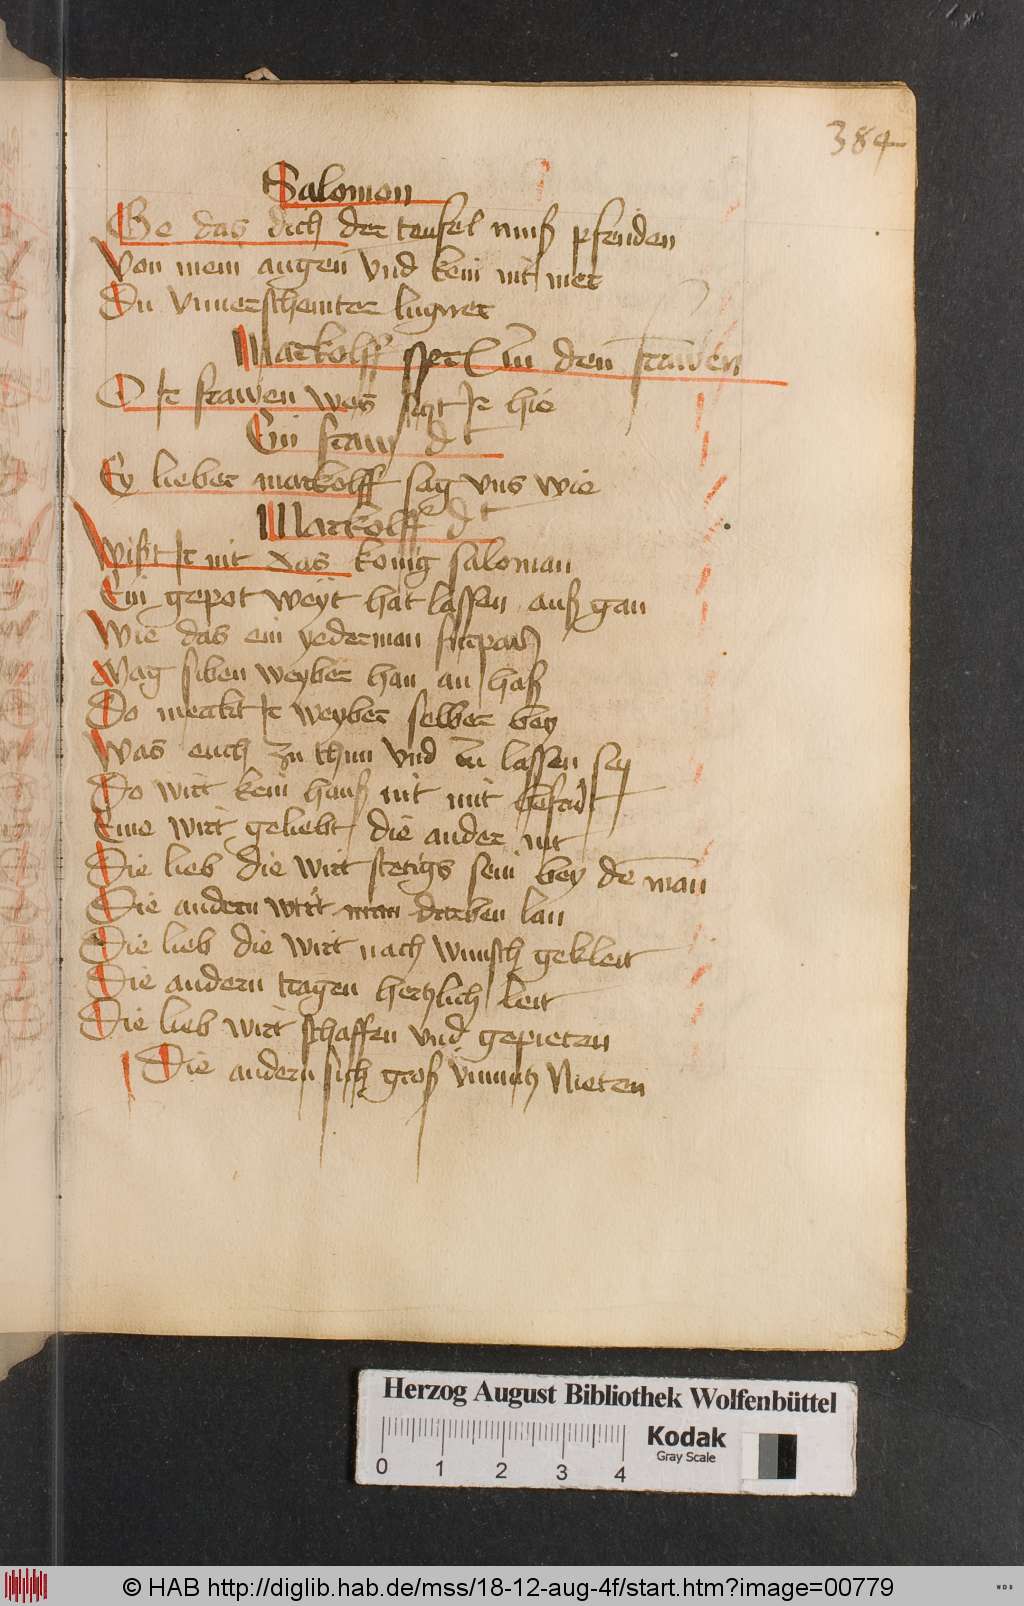 384
Salomon
Ge das dich der teufel muß pfenden
Von mein augen vnd kein nit mer
Du vnuerschemter lugner
Markolff zu den frawen
O ir frawen wes sigt ir hie
Ein fraw d
Ey lieber markolff sag vns wie
Markolff d
Wißt ir nit das konig saloman
Ein gepot weyt hat lassen auß gan
Wie das ein yederman furpas
Mag siben weyber han an haß
Do merckt ir weyber selber bey
Was euch zu thun vnd zu lassen sey
Do wirt kein hauß nit mit gefrid
Eine wirt geliebt die ander nit
Die lieb die wirt stetigs sein bey de man
Die andern wirt man darben lan
Die lieb die wirt nach wunsch gekleit
Die andern tragen hertzlich leit
Die lieb wirt schaffen vnd gepieten
Die andern sich groß vnmutz nieten
Herzog August Bibliothek Wolfenbüttel
Kodak
Gray Scale
0 1 2 3 4
© HAB http://diglib.hab.de/mss/18-12-aug-4f/start.htm?image=00779